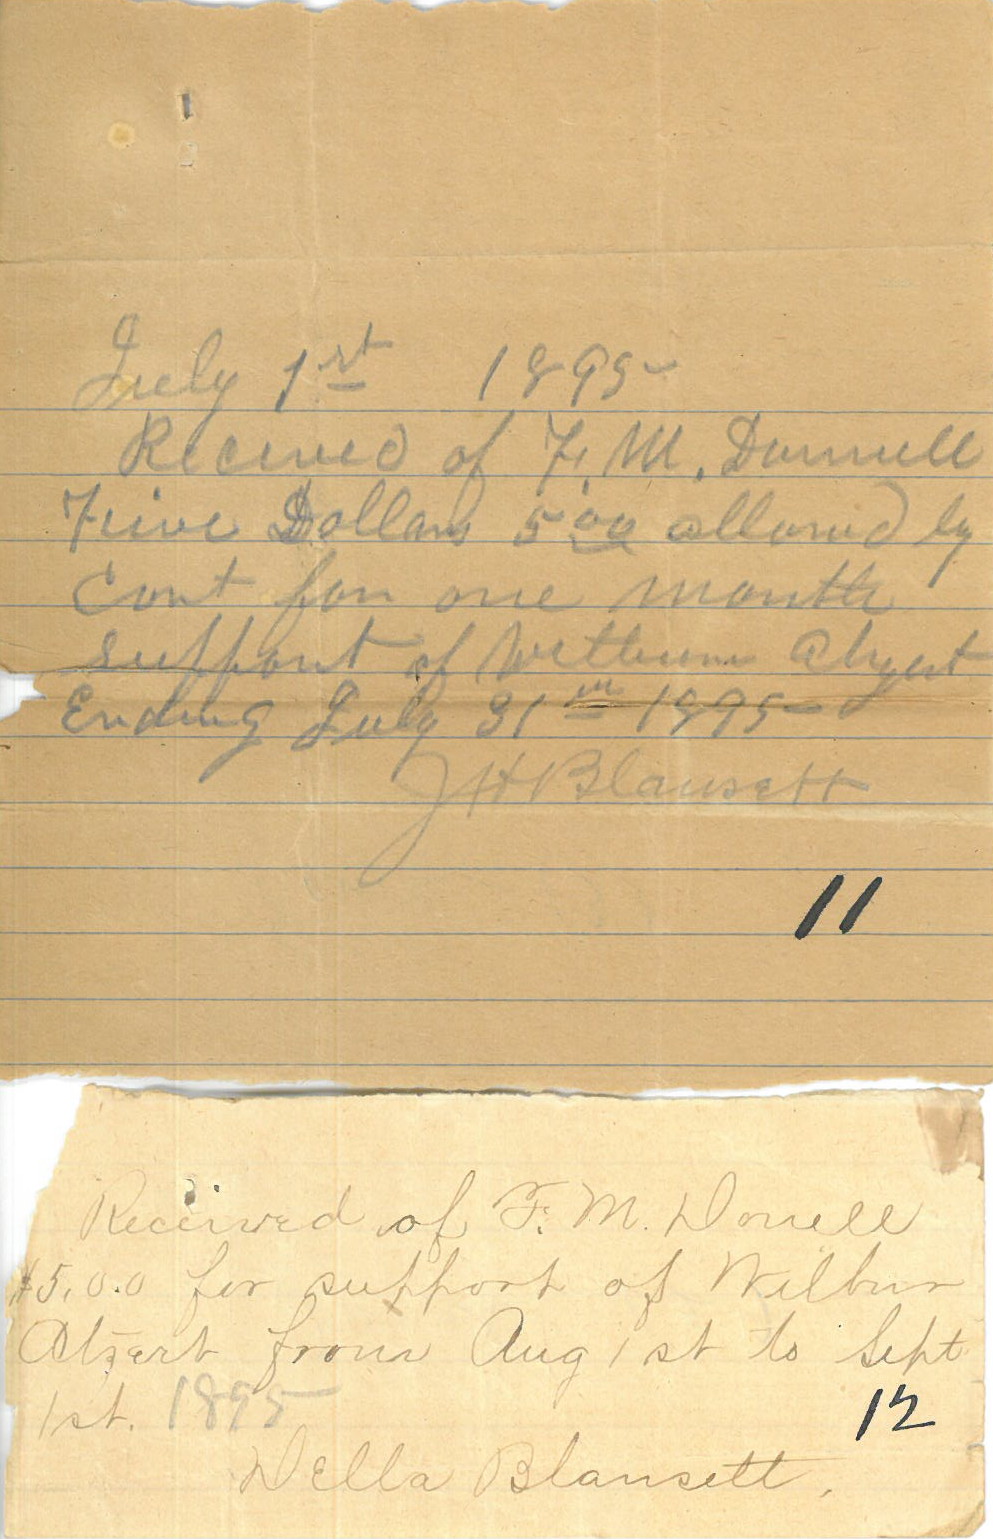 July 1st 1895
Received of F. M. Dannell
Five Dollars 5 00 allowed by
Cort for one month
support of
Ending July 31 1895
J H Blansett
11
Received of F. M. Donell
$5,0.0 for support of Wilbur
Alzert from Aug 1st to Sept
1st. 1895
12
Della Blansett.